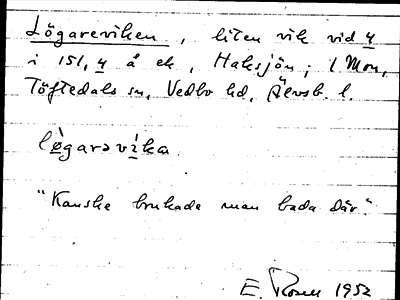 Lögareviken, liten vik vid 4
i 151, 4 å ek, Haksjön; 1 Mon,
Töftedals sn, Vedbo hd, Älvsb. l.
lø̀garəvìka
"Kanske brukade man bada där."
E. Rosen 1952